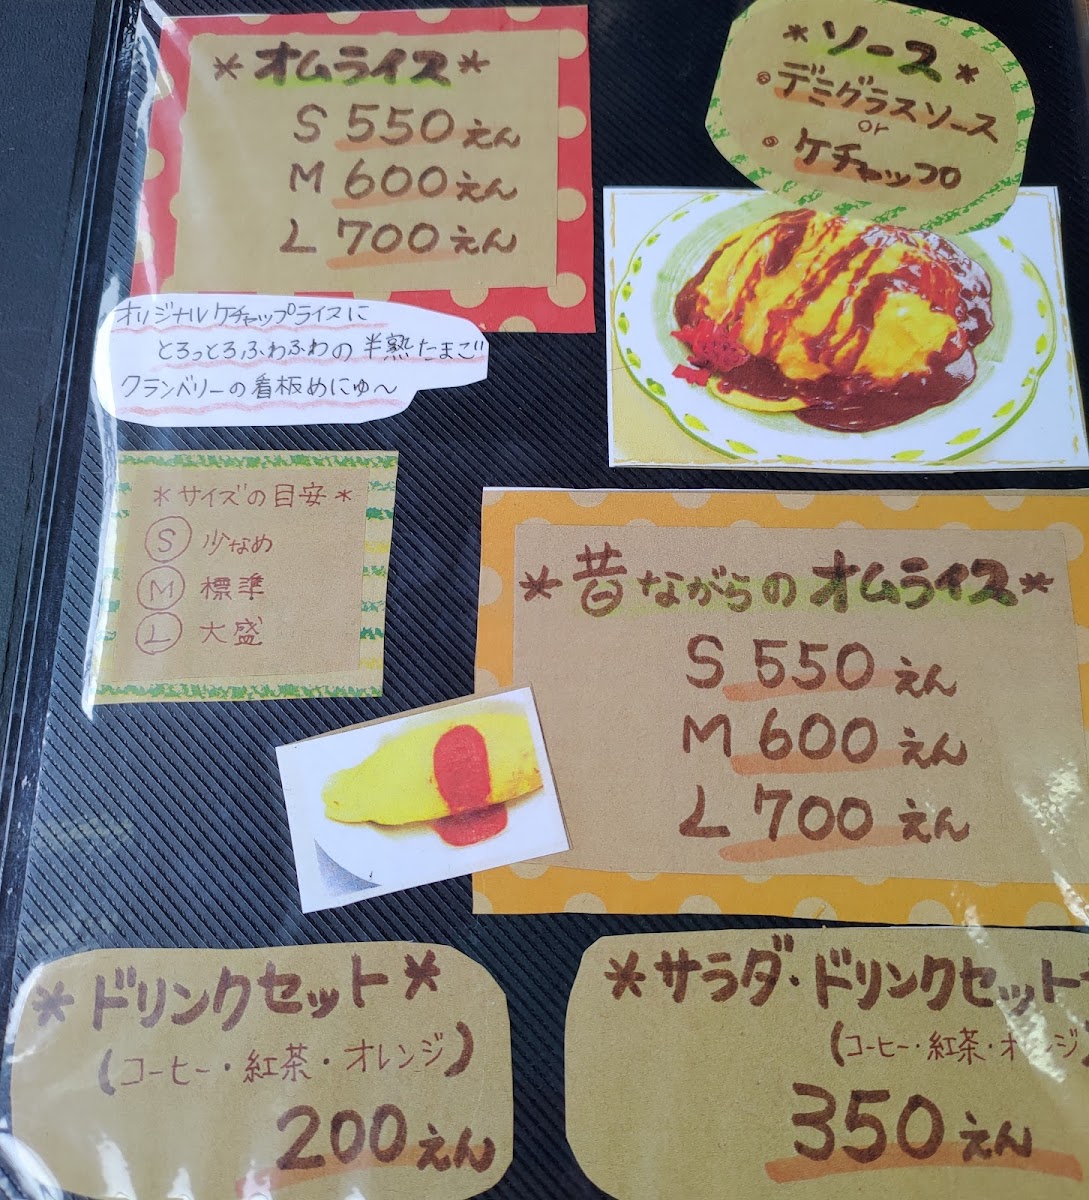 *オムライス*
S 550えん
M 600えん
L 700えん
*ソース*
・デミグラスソース
or
・ケチャップ
オリジナルケチャップライスに
とろっとろふわふわの半熟たまご
クランベリーの看板めにゅ〜
*サイズの目安*
Ⓢ 少なめ
Ⓜ 標準
Ⓛ 大盛
*昔ながらのオムライス*
S 550えん
M 600えん
L 700えん
*ドリンクセット*
(コーヒー・紅茶・オレンジ)
200えん
*サラダ・ドリンクセット*
(コーヒー・紅茶・オレンジ)
350えん